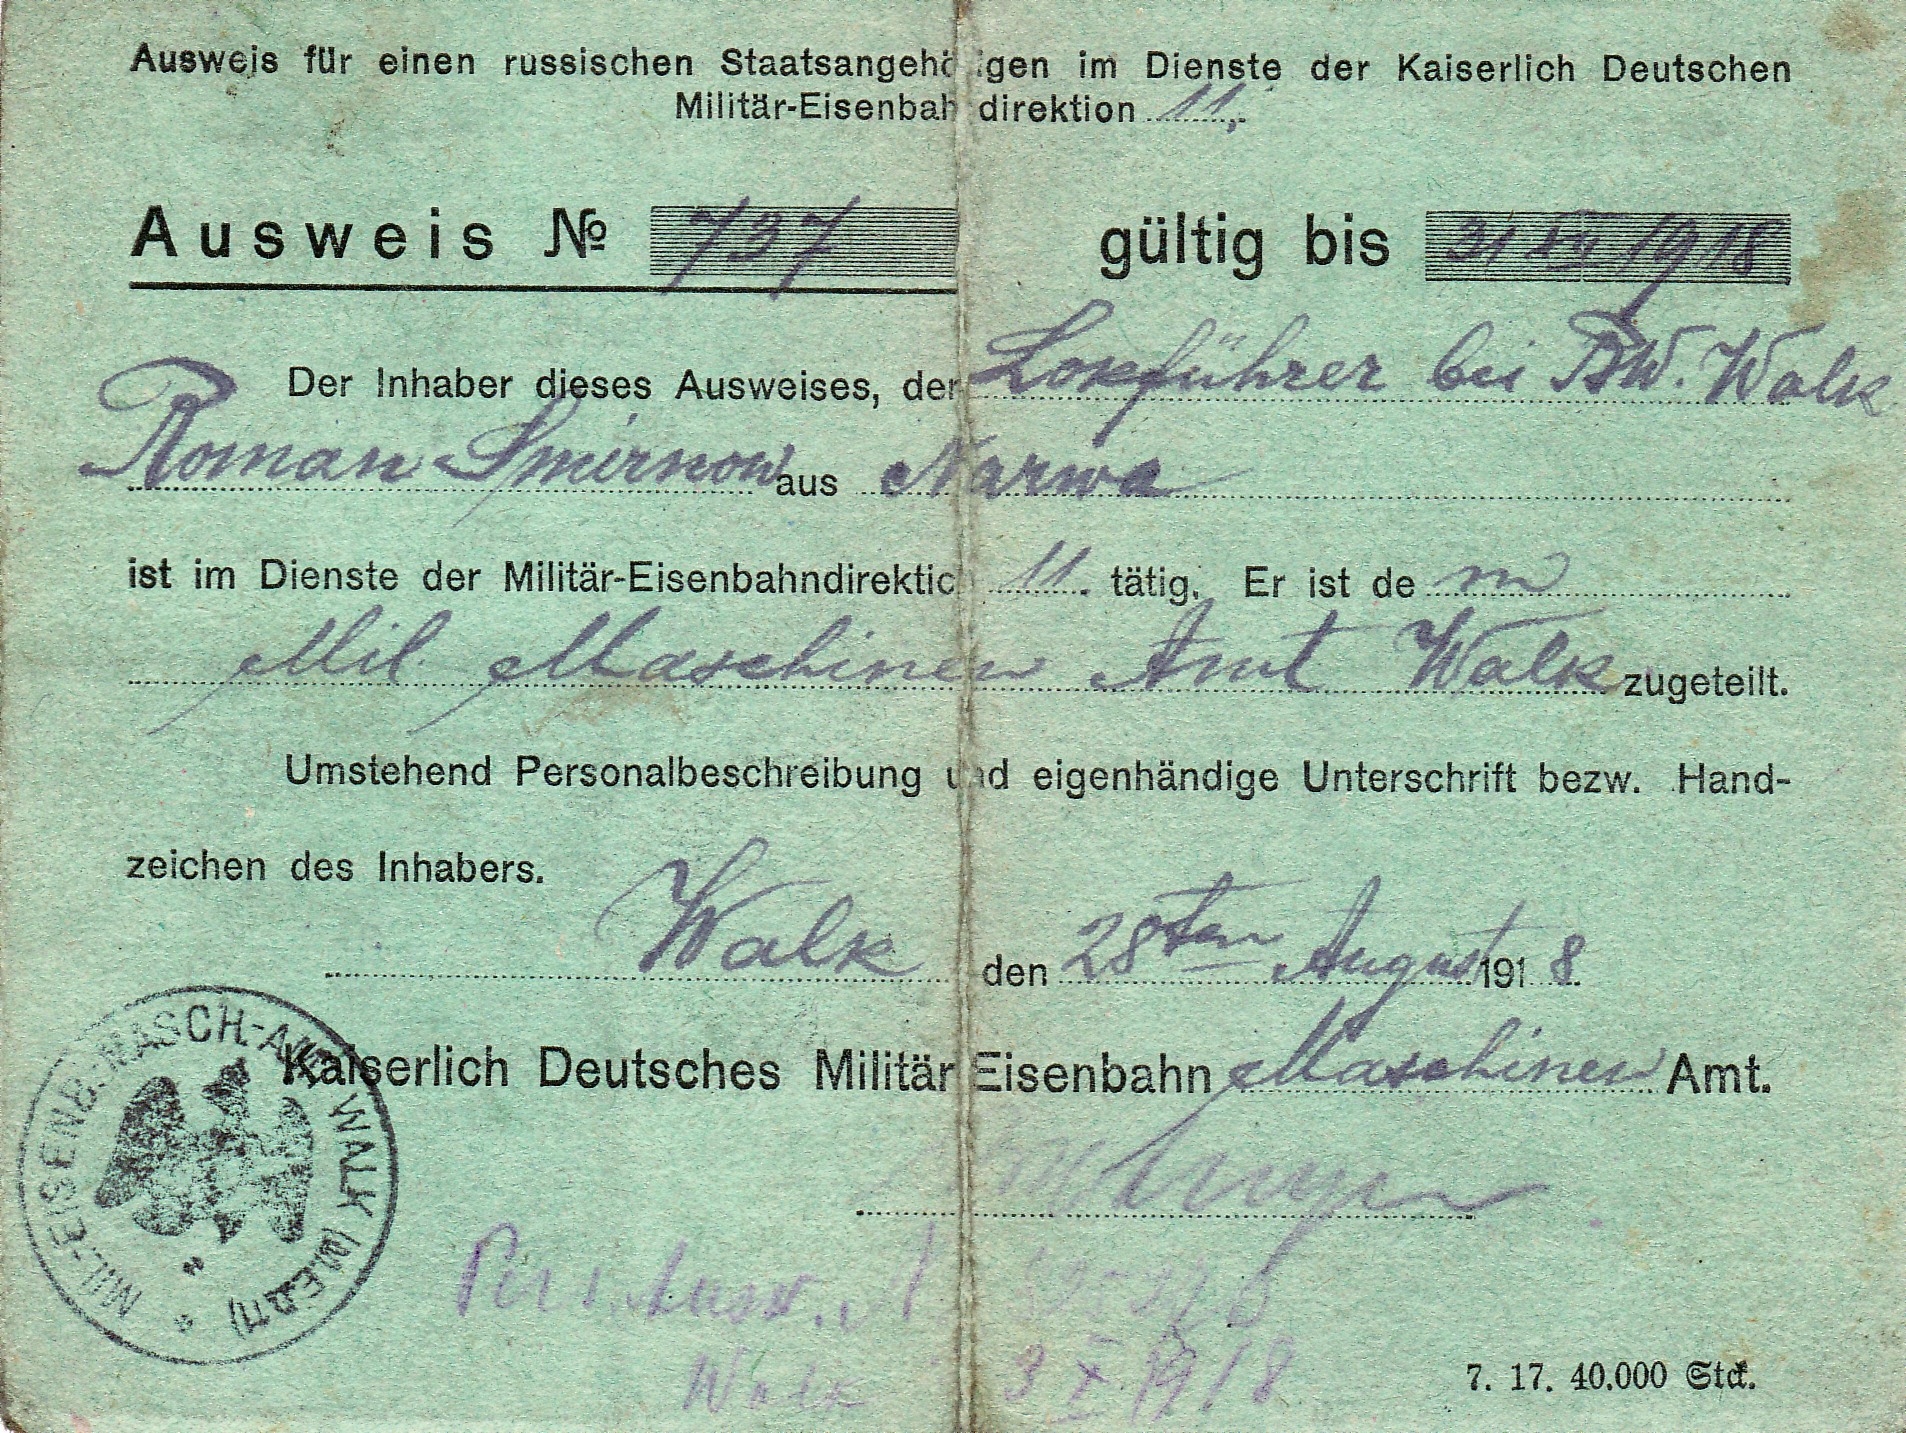 Ausweis für einen russischen Staatsangehörigen im Dienste der Kaiserlich Deutschen
Militär-Eisenbahndirektion 11.
Ausweis № 737 gültig bis 31 XII 1918
Der Inhaber dieses Ausweises, der Lokführer bei BW. Walk
Roman Smirnow aus Narwa
ist im Dienste der Militär-Eisenbahndirektion 11. tätig. Er ist dem
Mil. Maschinen Amt Walk zugeteilt.
Umstehend Personalbeschreibung und eigenhändige Unterschrift bezw. Hand-
zeichen des Inhabers.
Walk den 28ten August 1918.
Kaiserlich Deutsches Militär-Eisenbahn Maschinen Amt.
MIL.-EISENB.-MASCH.-AMT WALK
Walk 3 X 1918
7. 17. 40.000 Stck.